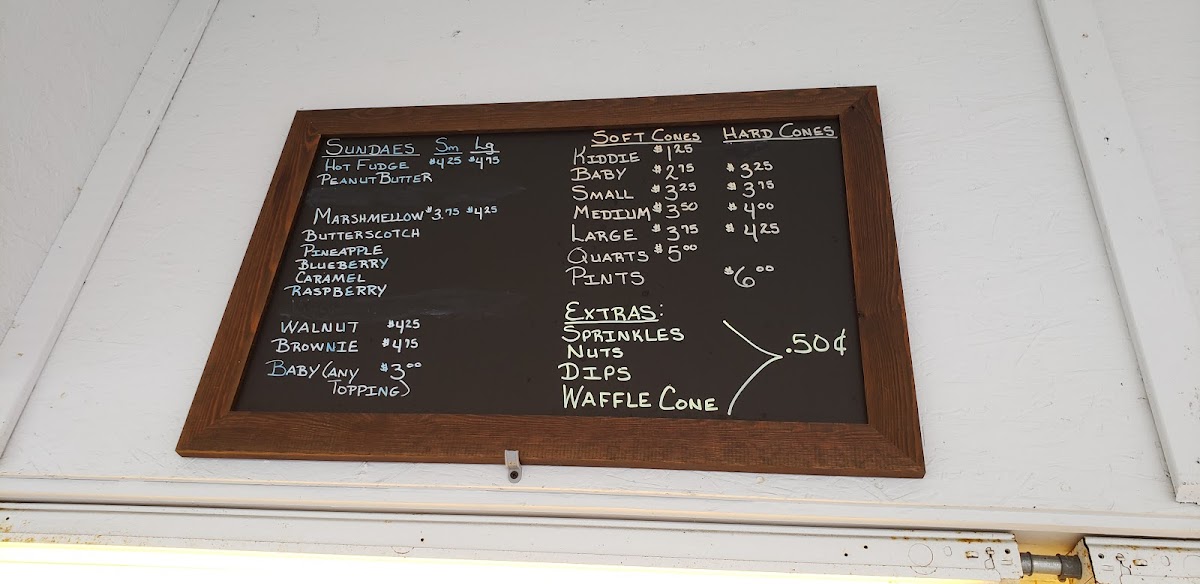 SUNDAES Sm Lg
HOT FUDGE $4.25 $4.75
PEANUT BUTTER
MARSHMELLOW $3.75 $4.25
BUTTERSCOTCH
PINEAPPLE
BLUEBERRY
CARAMEL
RASPBERRY
WALNUT $4.25
BROWNIE $4.75
BABY (ANY $3.00
TOPPING)
SOFT CONES HARD CONES
KIDDIE $1.25
BABY $2.75 $3.25
SMALL $3.25 $3.75
MEDIUM $3.50 $4.00
LARGE $3.75 $4.25
QUARTS $5.00
PINTS $6.00
EXTRAS:
SPRINKLES
NUTS
DIPS
WAFFLE CONE
.50¢